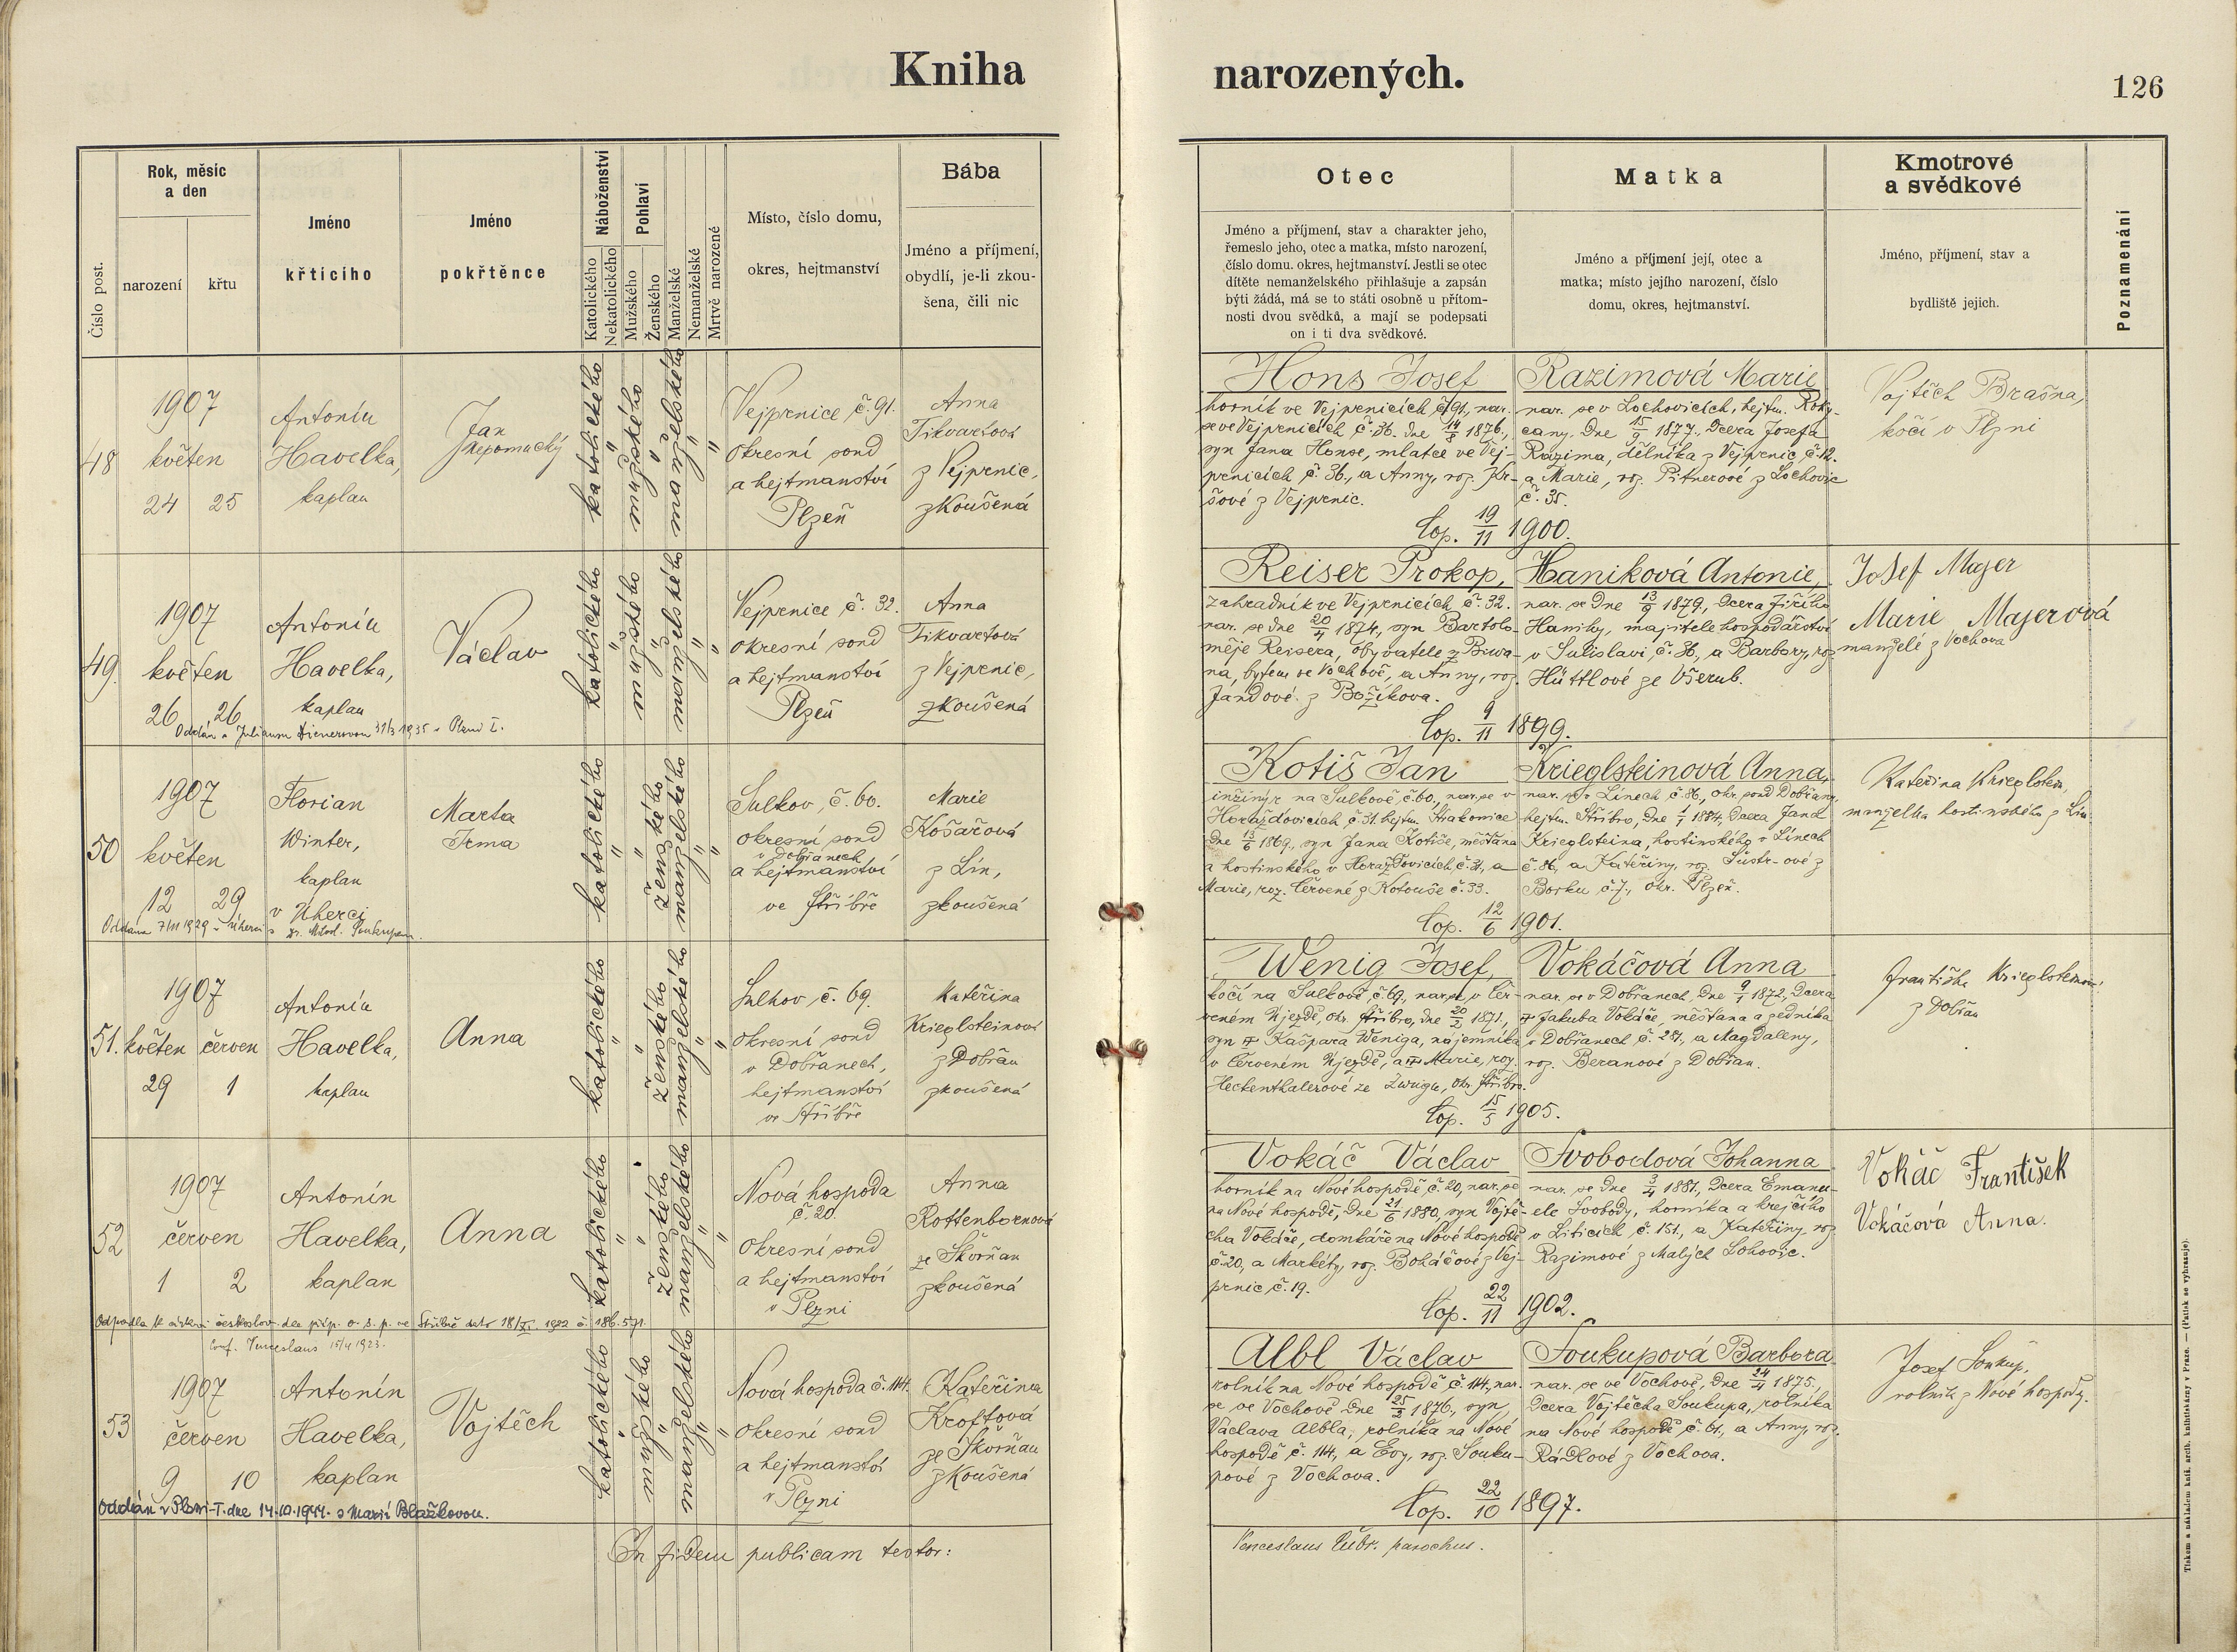 Kniha
narozených.
126
Číslo post.
Rok, měsíc
a den
narození
křtu
Jméno
křtícího
Jméno
pokřtěnce
Náboženství
Katolického
Nekatolického
Pohlaví
Mužského
Ženského
Manželské
Nemanželské
Mrtvě narozené
Místo, číslo domu,
okres, hejtmanství
Bába
Jméno a příjmení,
obydlí, je-li zkou-
šena, čili nic
Otec
Jméno a příjmení, stav a charakter jeho,
řemeslo jeho, otec a matka, místo narození,
číslo domu. okres, hejtmanství. Jestli se otec
dítěte nemanželského přihlašuje a zapsán
býti žádá, má se to státi osobně u přítom-
nosti dvou svědků, a mají se podepsati
on i ti dva svědkové.
Matka
Jméno a příjmení její, otec a
matka; místo jejího narození, číslo
domu, okres, hejtmanství.
Kmotrové
a svědkové
Jméno, příjmení, stav a
bydliště jejich.
Poznamenání
48
1907
květen
24 25
Antonín
Havelka,
kaplan
Jan
Nepomucký
katolického
"
mužského
"
manželského
"
"
Vejprnice č. 91.
okresní soud
a hejtmanství
Plzeň
Anna
Tikvartová
z Vejprnic,
zkoušená
Hons Josef
horník ve Vejprnicích č. 91, nar.
se ve Vejprnicích č. 36. dne 14/8 1876,
syn Jana Honse, mlatce ve Vej-
prnicích č. 36., a Anny, roz. Kr-
sové z Vejprnic.
Razimová Marie
nar. se v Lochovicích, hejtm. Roky-
cany. Dne 15/9 1877, dcera Josefa
Razima, dělníka z Vejprnic č. 12.
a Marie, roz. Pitnerové z Lochovic
č. 35.
Cop. 19/11 1900.
Vojtěch Brašna,
kočí v Plzni
49.
1907
květen
26 26
Antonín
Havelka,
kaplan
Václav
katolického
"
mužského
"
manželského
"
"
Vejprnice č. 32.
okresní soud
a hejtmanství
Plzeň
Anna
Tikvartová
z Vejprnic,
zkoušená
Oddán s 31/3 1935 v Plzni I.
Reiser Prokop,
zahradník ve Vejprnicích č. 32.
nar. se dne 20/4 1874, syn Bartolo-
měje Reisera, obyvatele z Biwa-
na, bytem ve Vochově, a Anny, roz.
Jandové z Božíkova.
Haniková Antonie,
nar. se dne 13/9 1879, dcera Jiřího
Haniky, majitele hospodářství
v Sulislavi č. 36, a Barbory, roz.
Hüttlové ze Všerub.
Cop. 9/11 1899.
Josef Majer
Marie Majerová
manželé z Vochova
50
1907
květen
12 29
Florian
Winter,
kaplan
v Úherci
Marta
Irma
katolického
"
"
ženského
manželského
"
"
Sulkov, č. 60.
okresní soud
v Dobřanech
a hejtmanství
ve Stříbře
Marie
Košařová
z Lín,
zkoušená
Oddána 7/VII 1929 v Úherci s Soukupem.
Kotiš Jan
inžinýr na Sulkově č. 60., nar. se v
Horažďovicích, č. 31. hejtm. Strakonice
dne 13/6 1869., syn Jana Kotiše, měšťana
a hostinského v Horažďovicích, č. 31, a
Marie, roz. Červené z Kotouše č. 33.
Krieglsteinová Anna,
nar. se v Línech č. 86, okr. soud Dobřany,
hejtm. Stříbro, dne 1/1 1884, dcera Jana
Krieglsteina, hostinského v Línech
č. 86, a Kateřiny, roz. Šustr-ové z
Borku č. 7., okr. Plzeň.
Cop. 12/6 1901.
Kateřina Krieglstein,
manželka hostinského z Lín.
51.
1907
květen červen
29 1
Antonín
Havelka,
kaplan
Anna
katolického
"
"
ženského
manželského
"
"
Sulkov, č. 69.
okresní soud
v Dobřanech,
hejtmanství
ve Stříbře
Kateřina
Krieglsteinová
z Dobřan
zkoušená
Wenig Josef,
kočí na Sulkově, č. 69, nar. se v Čer-
veném Újezdě, okr. Stříbro, dne 20/2 1871,
syn † Kašpara Weniga, nájemníka
v Červeném Újezdě, a † Marie, roz.
Heckenthalerové ze Zwugu, okr. Stříbro.
Vokáčová Anna
nar. se v Dobřanech, dne 9/1 1872, dcera
† Jakuba Vokáče, měšťana a zedníka
v Dobřanech č. 287., a Magdaleny,
roz. Beranové z Dobřan.
Cop. 15/5 1905.
Františka Krieglsteinová
z Dobřan
52
1907
červen
1 2
Antonín
Havelka,
kaplan
Anna
katolického
"
"
ženského
manželského
"
"
Nová hospoda
č. 20.
okresní soud
a hejtmanství
v Plzni
Anna
Rottenbornová
ze Škvrňan
zkoušená
Odpadla k církvi českoslov. dle příp. o. s. p. ve Stříbře dato 18/XI. 1922 č. 186.571.
Vokáč Václav
horník na Nové hospodě č. 20, nar. se
na Nové hospodě, dne 21/6 1880, syn Vojtě-
cha Vokáče, domkáře na Nové hospodě
č. 20, a Markéty, roz. Boháčové z Vej-
prnic č. 19.
Svobodová Johanna
nar. se dne 3/4 1881, dcera Emanu-
ele Svobody, horníka a krejčího
v Liticích č. 151., a Kateřiny roz.
Razimové z Malých Lohovic.
Cop. 22/11 1902.
Vokáč František
Vokáčová Anna.
Conf. Venceslaus 15/4 1923.
53
1907
červen
9 10
Antonín
Havelka,
kaplan
Vojtěch
katolického
"
mužského
"
manželského
"
"
Nová hospoda č. 114.
okresní soud
a hejtmanství
v Plzni
Kateřina
Kroftová
ze Škvrňan
zkoušená
Oddán v Plzni-I. dne 14.10.1944. s Marií Blažkovou.
Albl Václav
rolník na Nové hospodě č. 114, nar.
se ve Vochově dne 25/2 1876, syn
Václava Albla, rolníka na Nové
hospodě č. 114, a Evy, roz. Souku-
pové z Vochova.
Soukupová Barbora
nar. se ve Vochově, dne 24/4 1875.,
dcera Vojtěcha Soukupa, rolníka
na Nové hospodě č. 61., a Anny, roz.
Rádlové z Vochova.
Cop. 22/10 1897.
Josef Soukup,
rolník z Nové hospody.
In fidem publicam testor:
Venceslaus parochus.
Tiskem a nákladem kníž. arcib. knihtiskárny v Praze. — (Patisk se vyhrazuje).